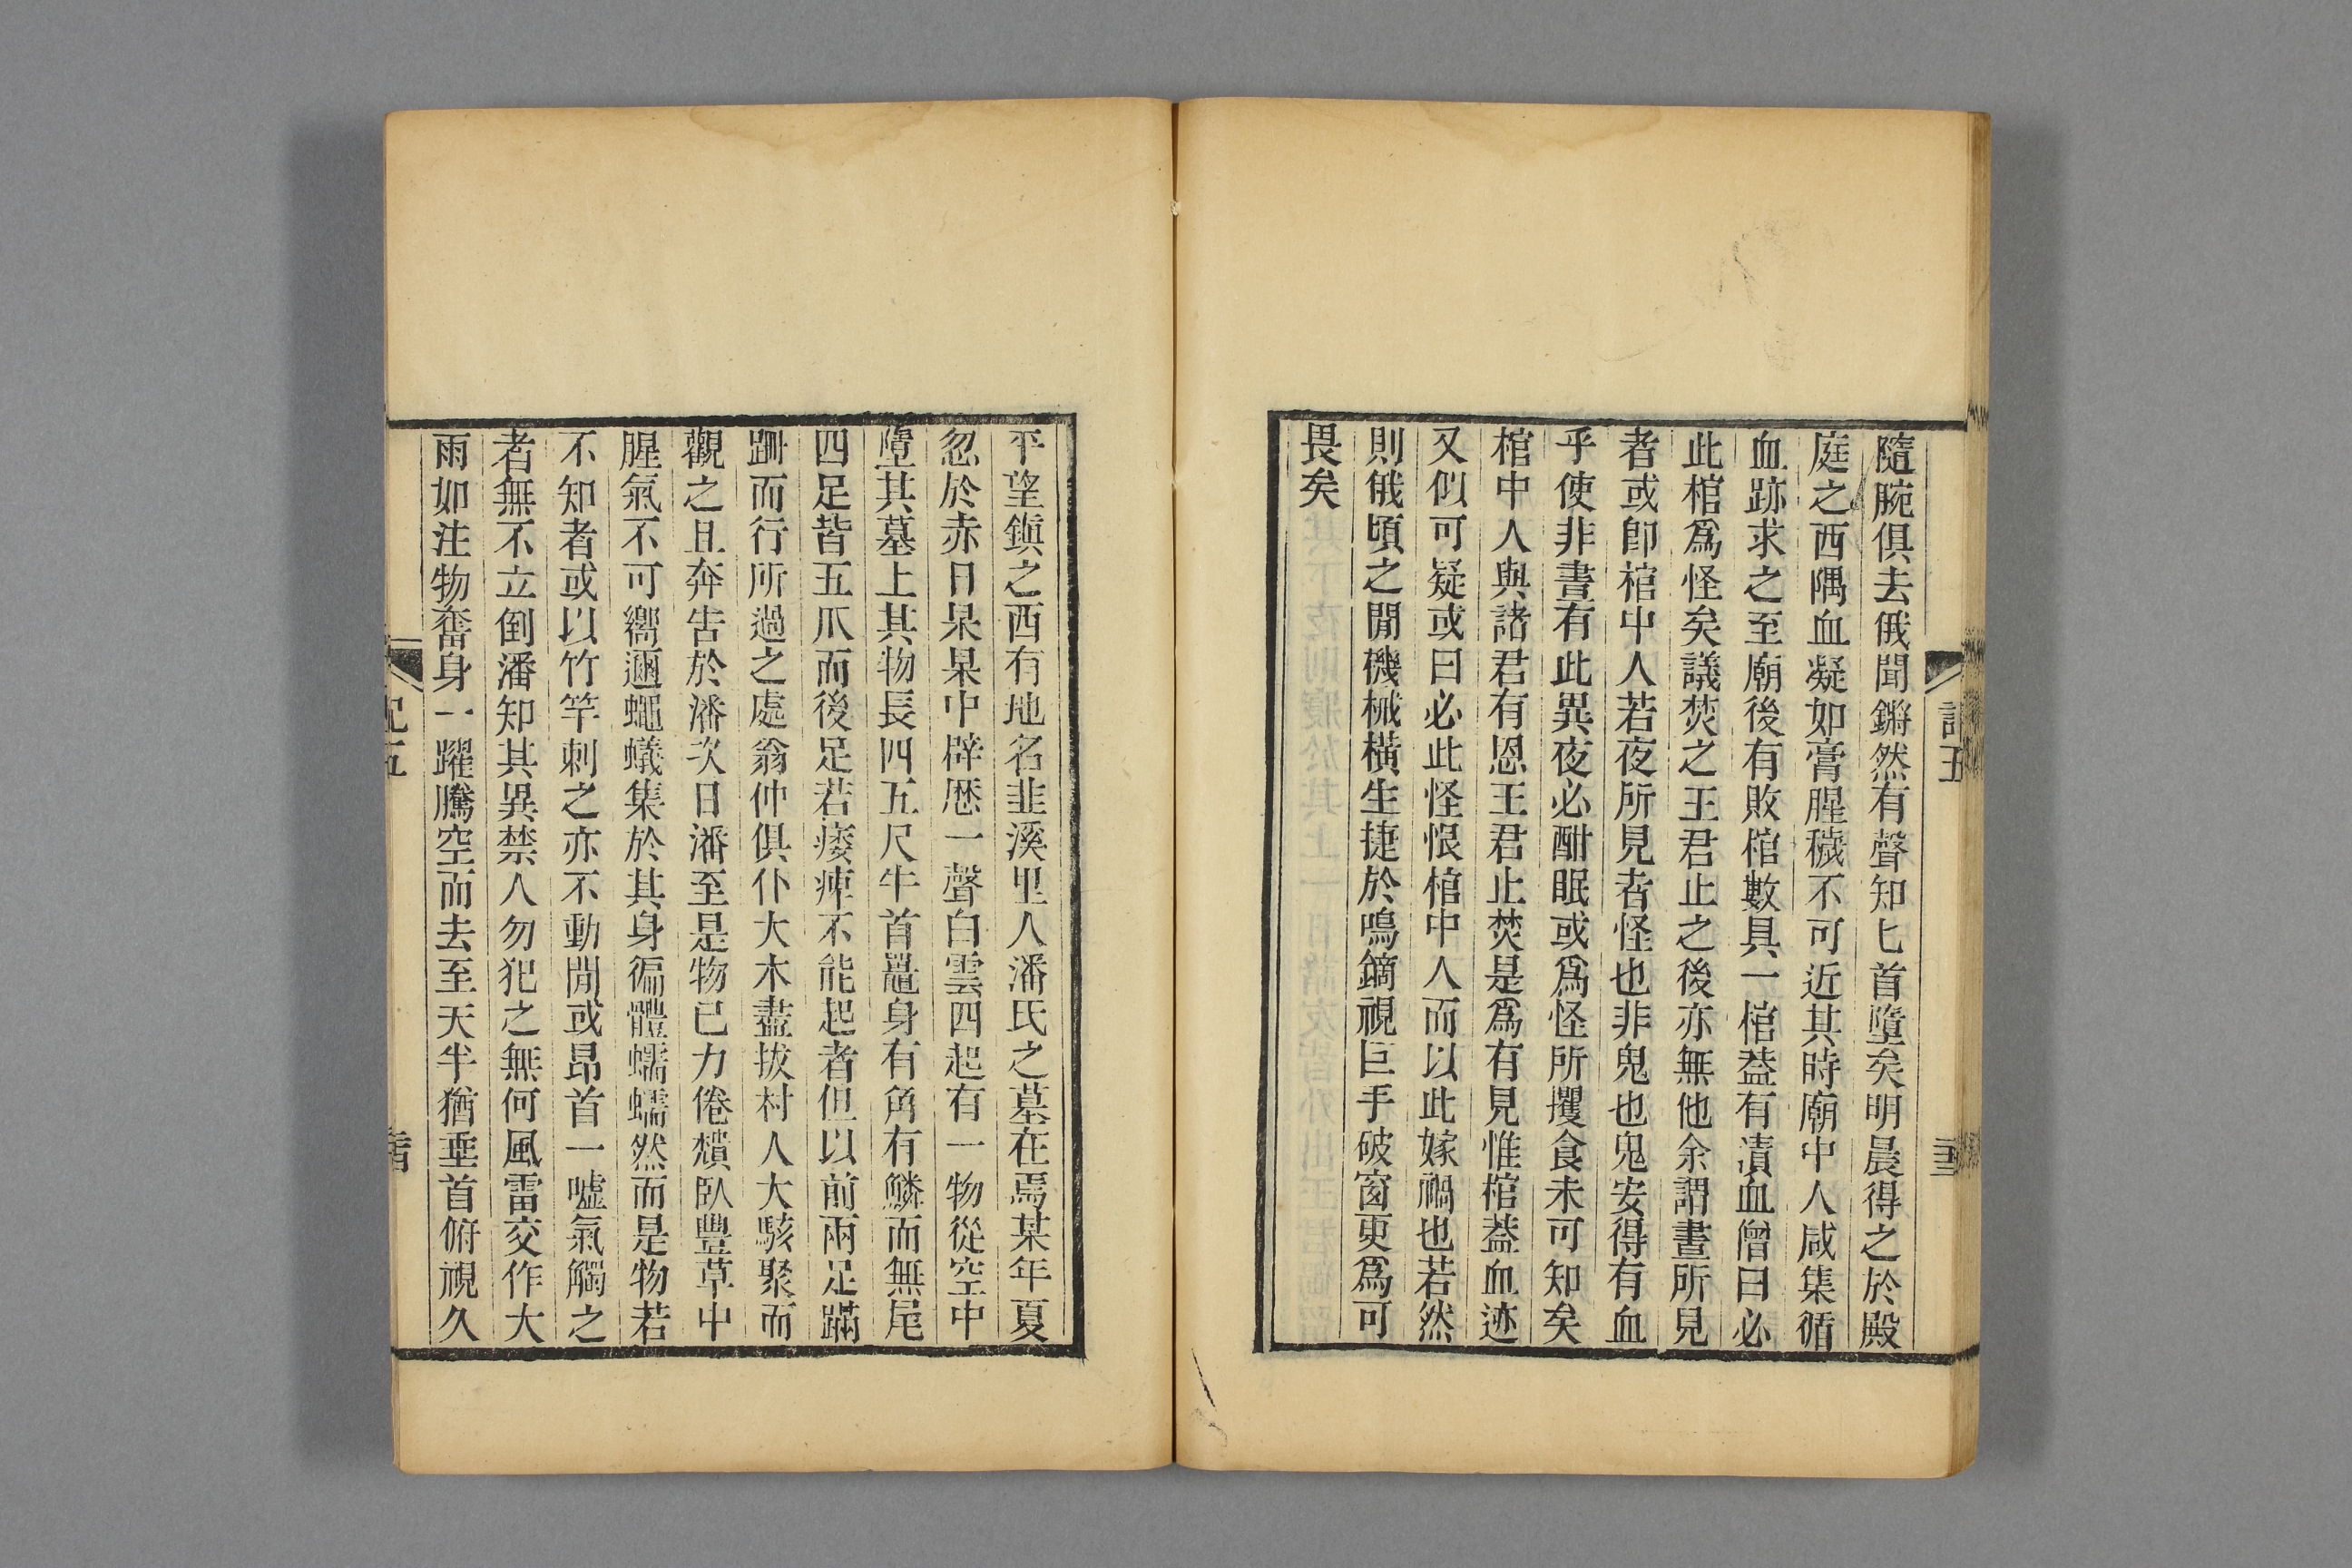 隨腕俱去俄聞鏘然有聲知匕首墮矣明晨得之於殿
庭之西隅血凝如膏腥穢不可近其時廟中人咸集循
血跡求之至廟後有敗棺數具一棺葢有漬血僧曰必
此棺爲怪矣議焚之王君止之後亦無他余謂晝所見
者或卽棺中人若夜所見者怪也非鬼也鬼安得有血
乎使非晝有此異夜必酣眠或爲怪所攫食未可知矣
棺中人與諸君有恩王君止焚是爲有見惟棺葢血迹
又似可疑或曰必此怪恨棺中人而以此嫁禍也若然
則俄頃之閒機械橫生捷於鳴鏑視巨手破窗更爲可
畏矣
平望鎭之西有地名韭溪里人潘氏之墓在焉某年夏
忽於赤日杲杲中辟歷一聲白雲四起有一物從空中
墮其墓上其物長四五尺牛首鼉身有角有鱗而無尾
四足皆五爪而後足若痿痺不能起者但以前兩足蹣
跚而行所過之處翁仲俱仆大木盡拔村人大駭聚而
觀之且奔告於潘次日潘至是物已力倦頹臥豐草中
腥氣不可嚮邇蠅蟻集於其身徧體蠕蠕然而是物若
不知者或以竹竿刺之亦不動閒或昂首一噓氣觸之
者無不立倒潘知其異禁人勿犯之無何風雷交作大
雨如注物奮身一躍騰空而去至天半猶垂首俯視久
記五